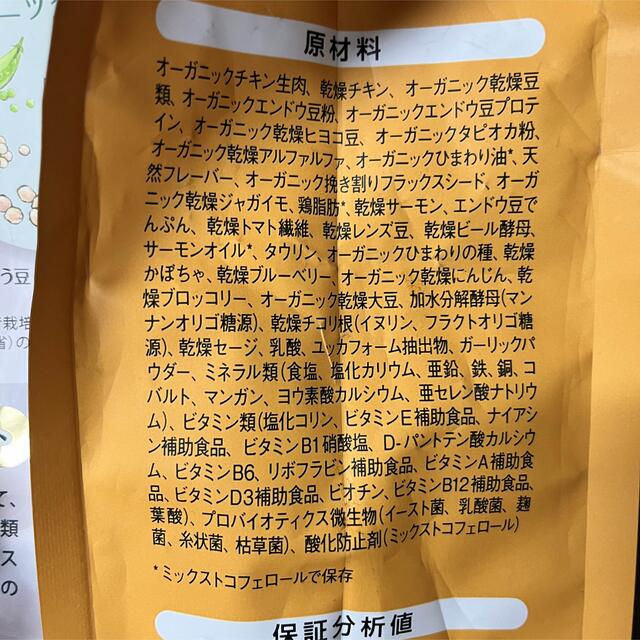 原材料
オーガニックチキン生肉、乾燥チキン、オーガニック乾燥豆
類、オーガニックエンドウ豆粉、オーガニックエンドウ豆プロテ
イン、オーガニック乾燥ヒヨコ豆、オーガニックタピオカ粉、
オーガニック乾燥アルファルファ、オーガニックひまわり油*、天
然フレーバー、オーガニック挽き割りフラックスシード、オーガ
ニック乾燥ジャガイモ、鶏脂肪*、乾燥サーモン、エンドウ豆で
んぷん、乾燥トマト繊維、乾燥レンズ豆、乾燥ビール酵母、
サーモンオイル*、タウリン、オーガニックひまわりの種、乾燥
かぼちゃ、乾燥ブルーベリー、オーガニック乾燥にんじん、乾
燥ブロッコリー、オーガニック乾燥大豆、加水分解酵母(マン
ナンオリゴ糖源)、乾燥チコリ根(イヌリン、フラクトオリゴ糖
源)、乾燥セージ、乳酸、ユッカフォーム抽出物、ガーリックパ
ウダー、ミネラル類(食塩、塩化カリウム、亜鉛、鉄、銅、コ
バルト、マンガン、ヨウ素酸カルシウム、亜セレン酸ナトリウ
ム)、ビタミン類(塩化コリン、ビタミンE補助食品、ナイアシ
ン補助食品、ビタミンB1硝酸塩、D-パントテン酸カルシウ
ム、ビタミンB6、リボフラビン補助食品、ビタミンA補助食
品、ビタミンD3補助食品、ビオチン、ビタミンB12補助食品、
葉酸)、プロバイオティクス微生物(イースト菌、乳酸菌、麹
菌、糸状菌、枯草菌)、酸化防止剤(ミックストコフェロール)
*ミックストコフェロールで保存
保証分析値
う豆
栽培
省)の
て、
類
ス
の